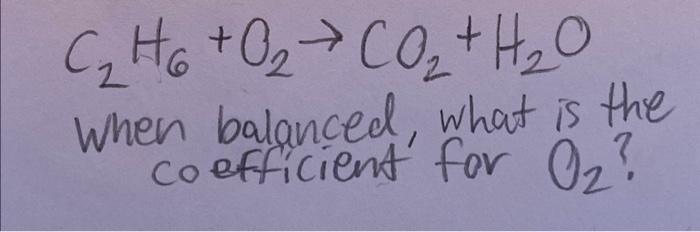 C₂H₆ + O₂ → CO₂ + H₂O
When balanced, what is the
coefficient for O₂?